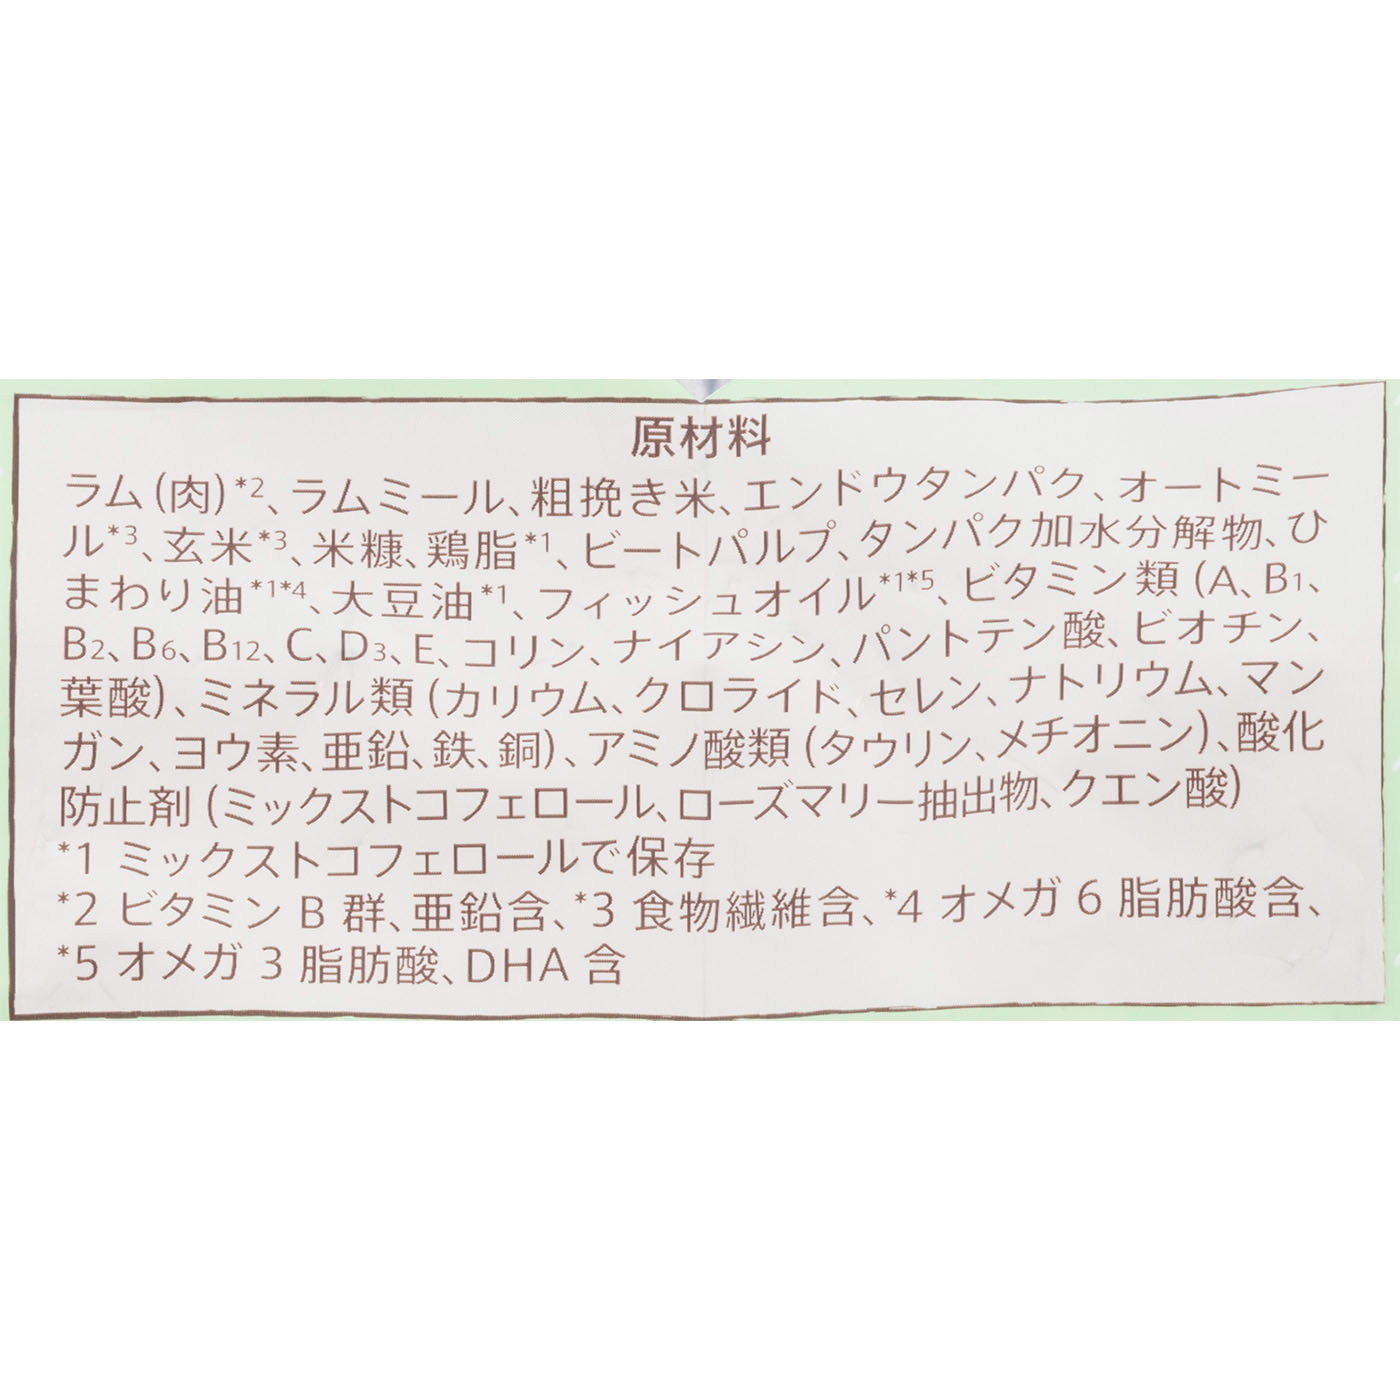 原材料
ラム(肉)*2、ラムミール、粗挽き米、エンドウタンパク、オートミー
ル*3、玄米*3、米糠、鶏脂*1、ビートパルプ、タンパク加水分解物、ひ
まわり油*1*4、大豆油*1、フィッシュオイル*1*5、ビタミン類(A、B1、
B2、B6、B12、C、D3、E、コリン、ナイアシン、パントテン酸、ビオチン、
葉酸)、ミネラル類(カリウム、クロライド、セレン、ナトリウム、マン
ガン、ヨウ素、亜鉛、鉄、銅)、アミノ酸類(タウリン、メチオニン)、酸化
防止剤(ミックストコフェロール、ローズマリー抽出物、クエン酸)
*1 ミックストコフェロールで保存
*2 ビタミン B 群、亜鉛含、*3 食物繊維含、*4 オメガ 6 脂肪酸含、
*5 オメガ 3 脂肪酸、DHA 含